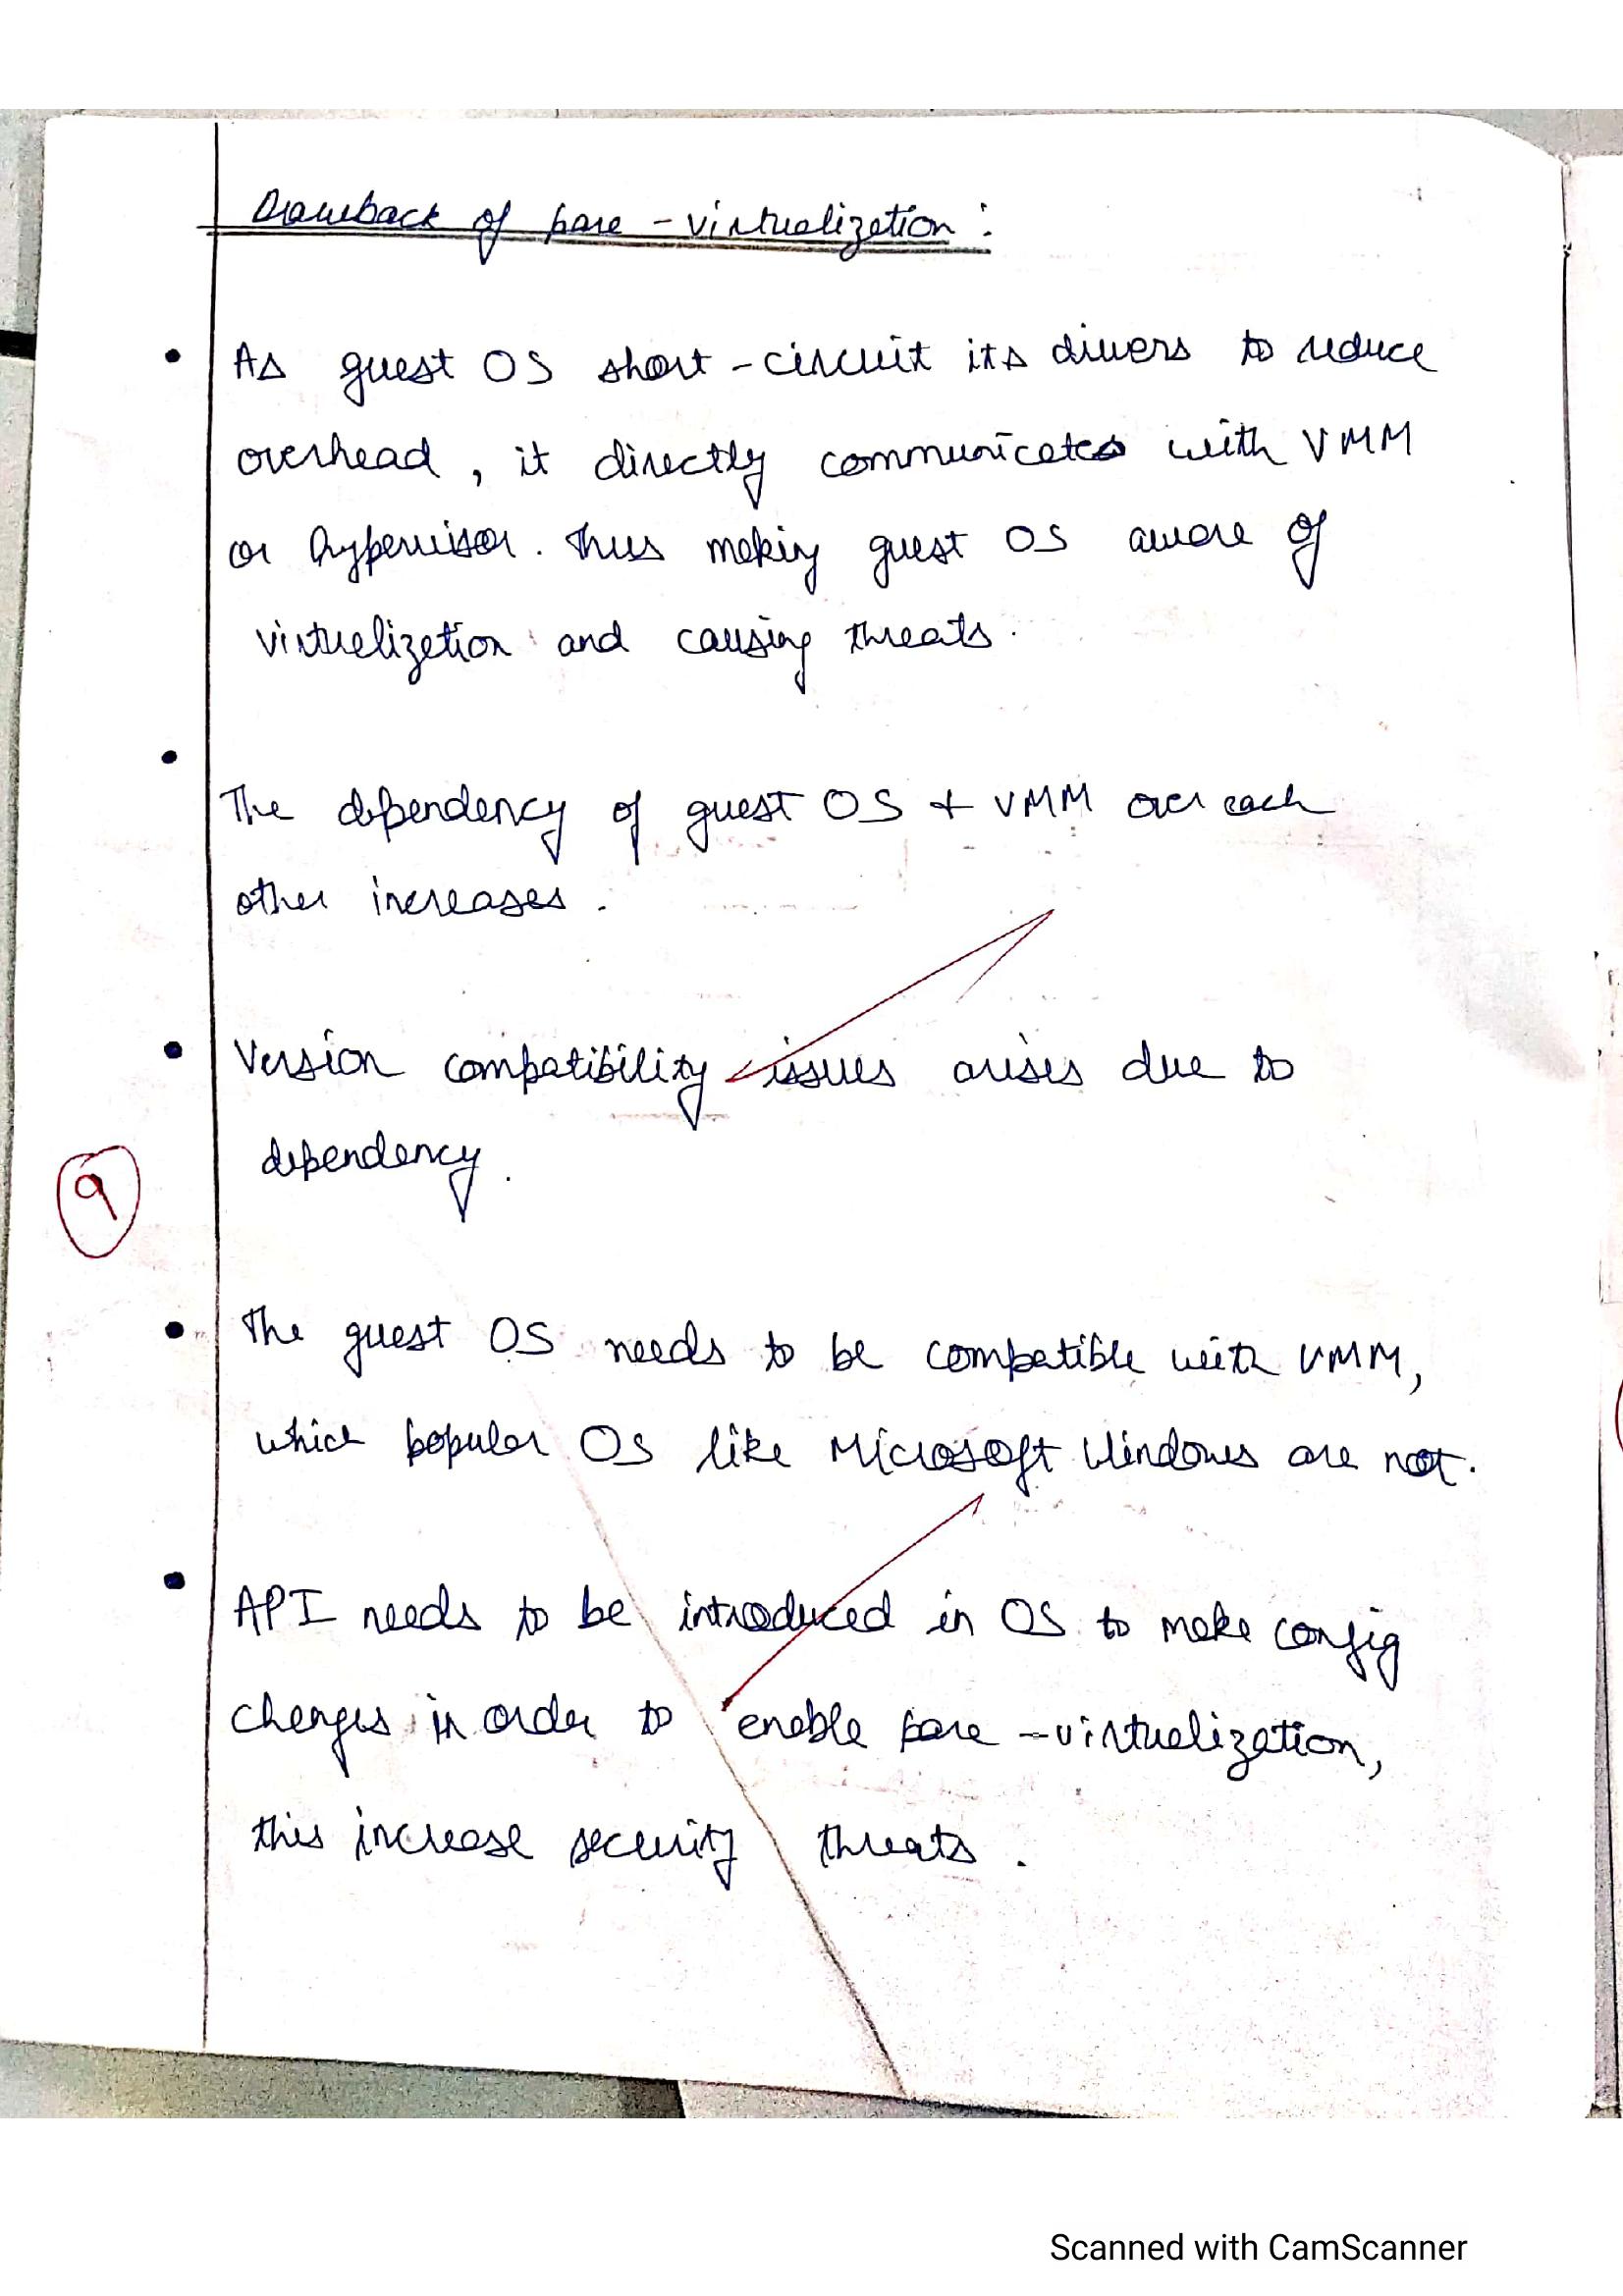 Drawback of para-virtualization :
• As guest OS short-circuit its drivers to reduce
overhead, it directly communicates with VMM
or hypervisor. Thus making guest OS aware of
virtualization and causing threats.
• The dependency of guest OS + VMM over each
other increases.
• Version compatibility issues arises due to
dependency.
9
• The guest OS needs to be compatible with VMM,
which popular OS like Microsoft Windows are not.
• API needs to be introduced in OS to make config
changes in order to enable para-virtualization,
this increase security threats.
Scanned with CamScanner